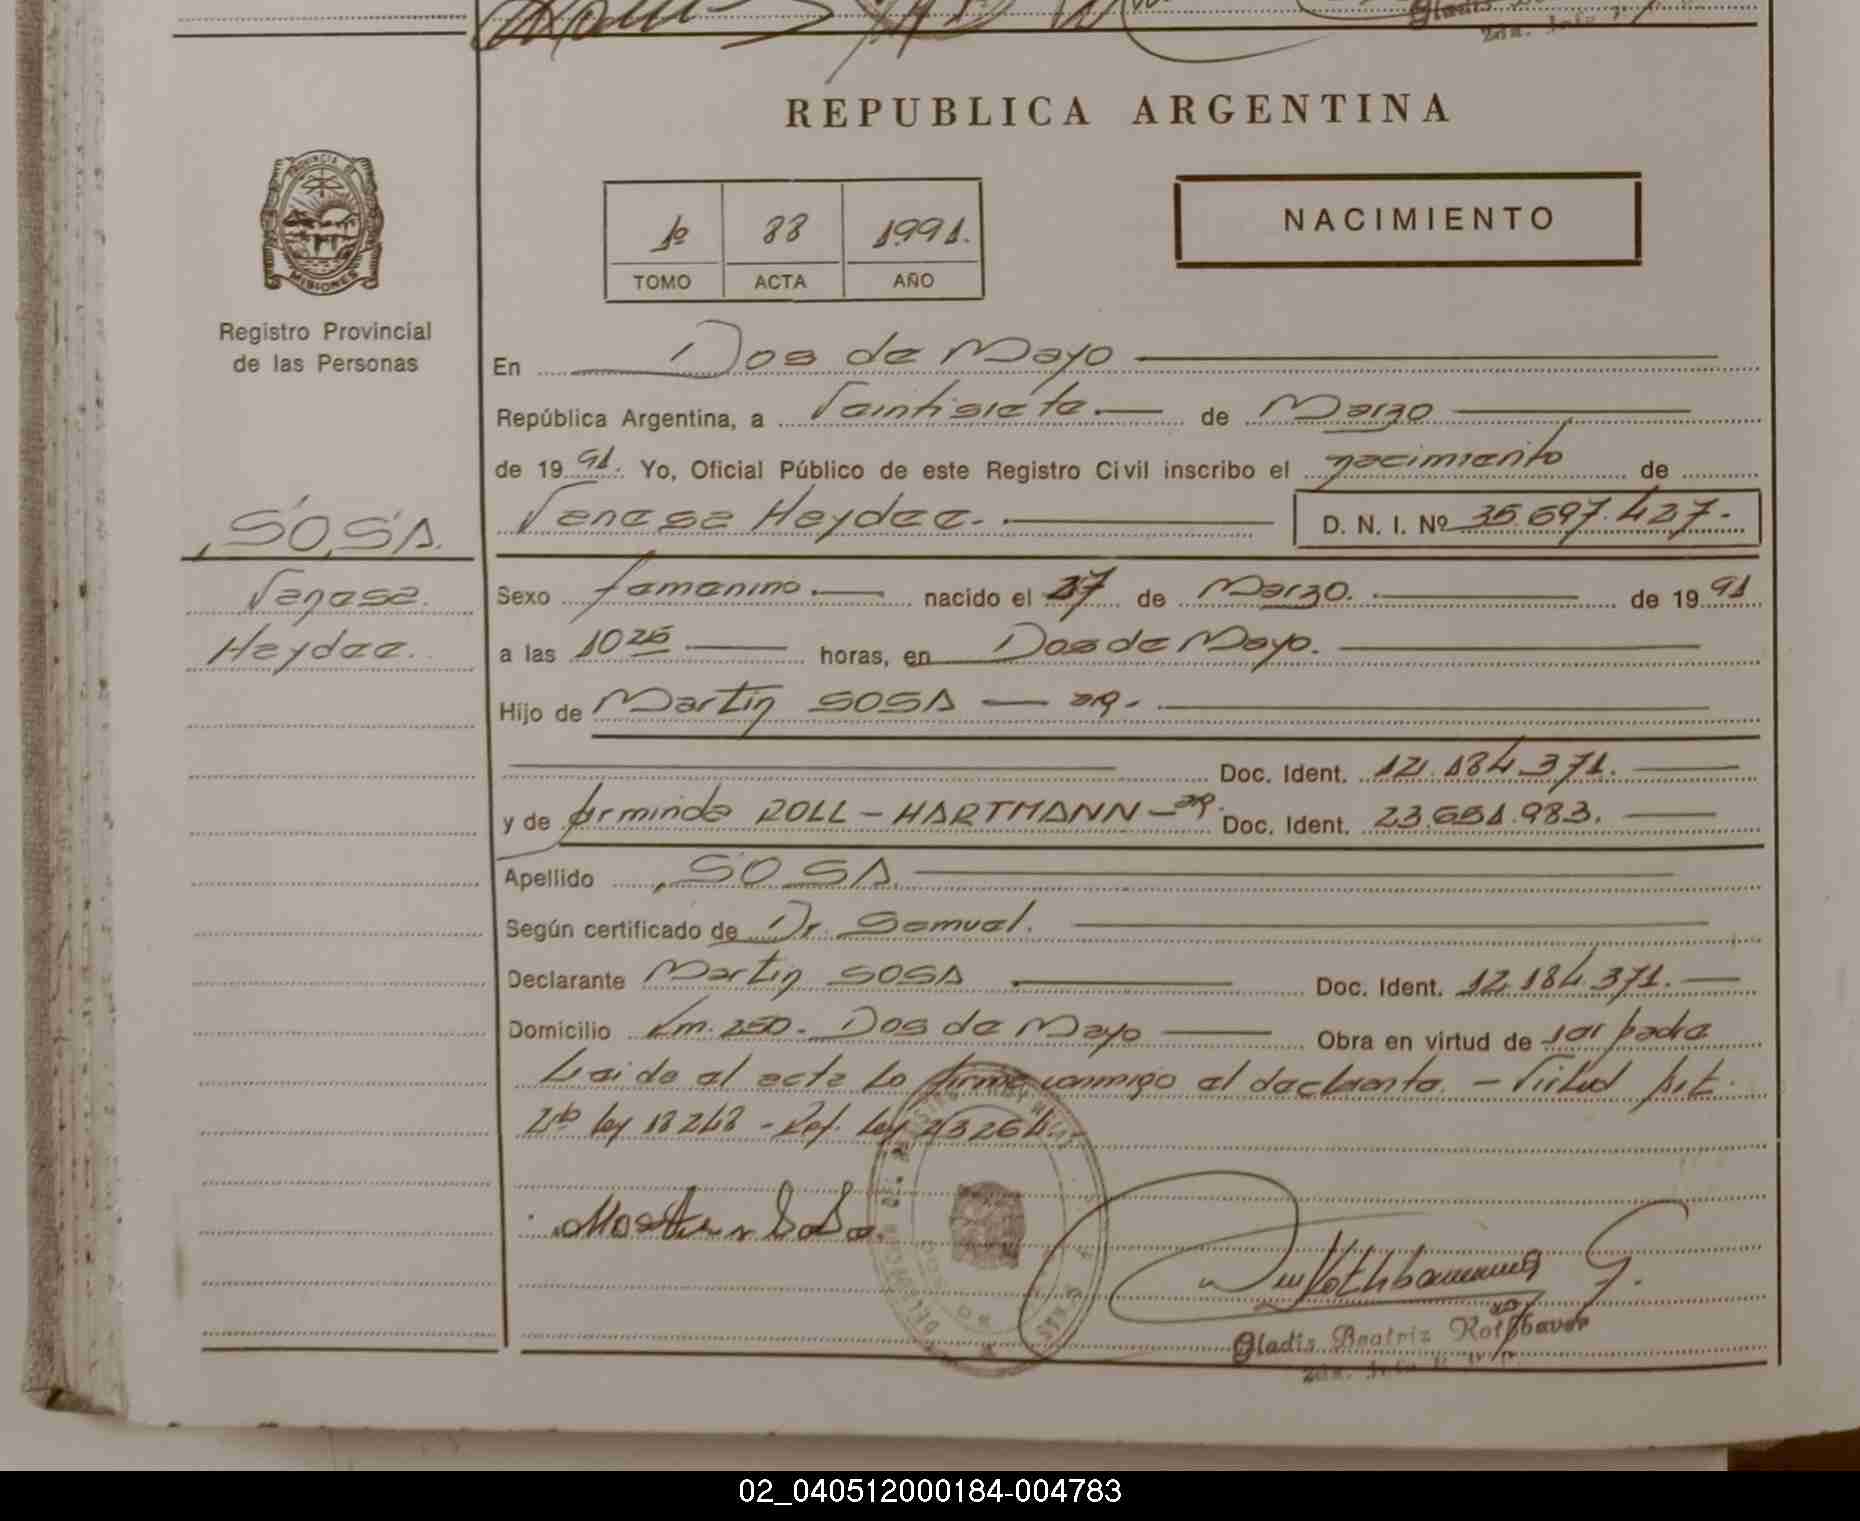 REPUBLICA ARGENTINA
PROVINCIA DE
MISIONES
Registro Provincial
de las Personas
1º 88 1991.
TOMO ACTA AÑO
NACIMIENTO
En Dos de Mayo
República Argentina, a Veintisiete.— de Marzo
de 1991. Yo, Oficial Público de este Registro Civil inscribo el nacimiento de
Vanesa Haydee. D. N. I. Nº 35.697.427.-
SOSA.
Vanesa
Haydee.
Sexo femenino.— nacido el 27 de Marzo. de 1991
a las 10 25 horas, en Dos de Mayo.
Hijo de Martin SOSA — ar.
Doc. Ident. 12.184.371.
y de Arminda ROLL - HARTMANN - ar. Doc. Ident. 23.651.983.
Apellido SOSA
Según certificado de Dr. Samuel.
Declarante Martin SOSA Doc. Ident. 12.184.371.
Domicilio km. 250. Dos de Mayo Obra en virtud de ser padre
Leida el acta la firma conmigo el declarante. - Virtud
ley 18248 - Ref. Ley 23264.-
Martin Sosa
Gladis Beatriz Rothbauer
02_040512000184-004783